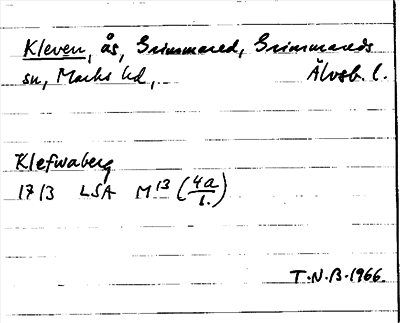 Kleven, ås, Grimmared, Grimmareds
sn, Marks hd, Älvsb. l.
Klefwaberg
1713 LSA M¹³ (4a/1.)
T.N.B. 1966.